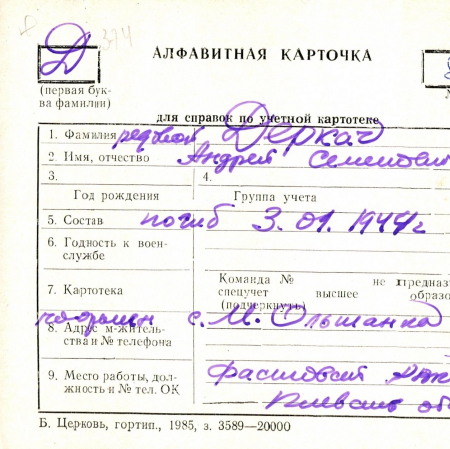 374
Д
АЛФАВИТНАЯ КАРТОЧКА
(первая бук-
ва фамилии)
для справок по учетной картотеке
1. Фамилия рядвой Деркач
2. Имя, отчество Андрей Семенович
3.
4.
Год рождения
Группа учета
5. Состав погиб 3.01.1944г
6. Годность к воен-
службе
7. Картотека
Команда № не предназ
спецучет высшее образо
(подчеркнуть)
8. Адрес м-житель-
ства и № телефона
с. М. Ольшанка
9. Место работы, дол-
жность и № тел. ОК
Фастовский
Киевск об
Б. Церковь, гортип., 1985, з. 3589—20000